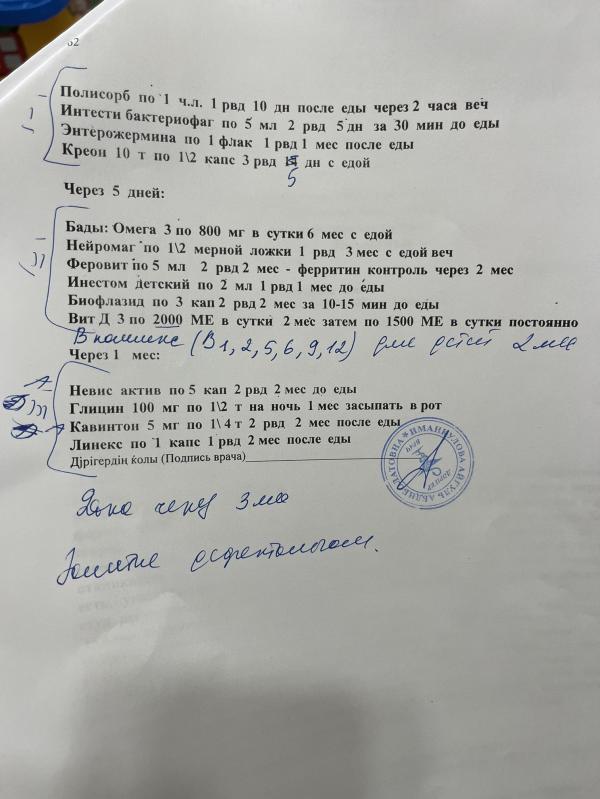 62
Полисорб по 1 ч.л. 1 рвд 10 дн после еды через 2 часа веч
Интести бактериофаг по 5 мл 2 рвд 5 дн за 30 мин до еды
Энтерожермина по 1 флак 1 рвд 1 мес после еды
Креон 10 т по 1\2 капс 3 рвд дн с едой
5
Через 5 дней:
Бады: Омега 3 по 800 мг в сутки 6 мес с едой
Нейромаг по 1\2 мерной ложки 1 рвд 3 мес с едой веч
Феровит по 5 мл 2 рвд 2 мес - ферритин контроль через 2 мес
Инестом детский по 2 мл 1 рвд 1 мес до еды
Биофлазид по 3 кап 2 рвд 2 мес за 10-15 мин до еды
Вит Д 3 по 2000 МЕ в сутки 2 мес затем по 1500 МЕ в сутки постоянно
В комплекс (В1, 2, 5, 6, 9, 12) для детей 2 мес
Через 1 мес:
Невис актив по 5 кап 2 рвд 2 мес до еды
Глицин 100 мг по 1\2 т на ночь 1 мес засыпать в рот
Кавинтон 5 мг по 1\4 т 2 рвд 2 мес после еды
Линекс по 1 капс 1 рвд 2 мес после еды
Дірігердің колы (Подпись врача)
ИМАНКУЛОВА АЙГУЛЬ
ВРАЧ
3 мес